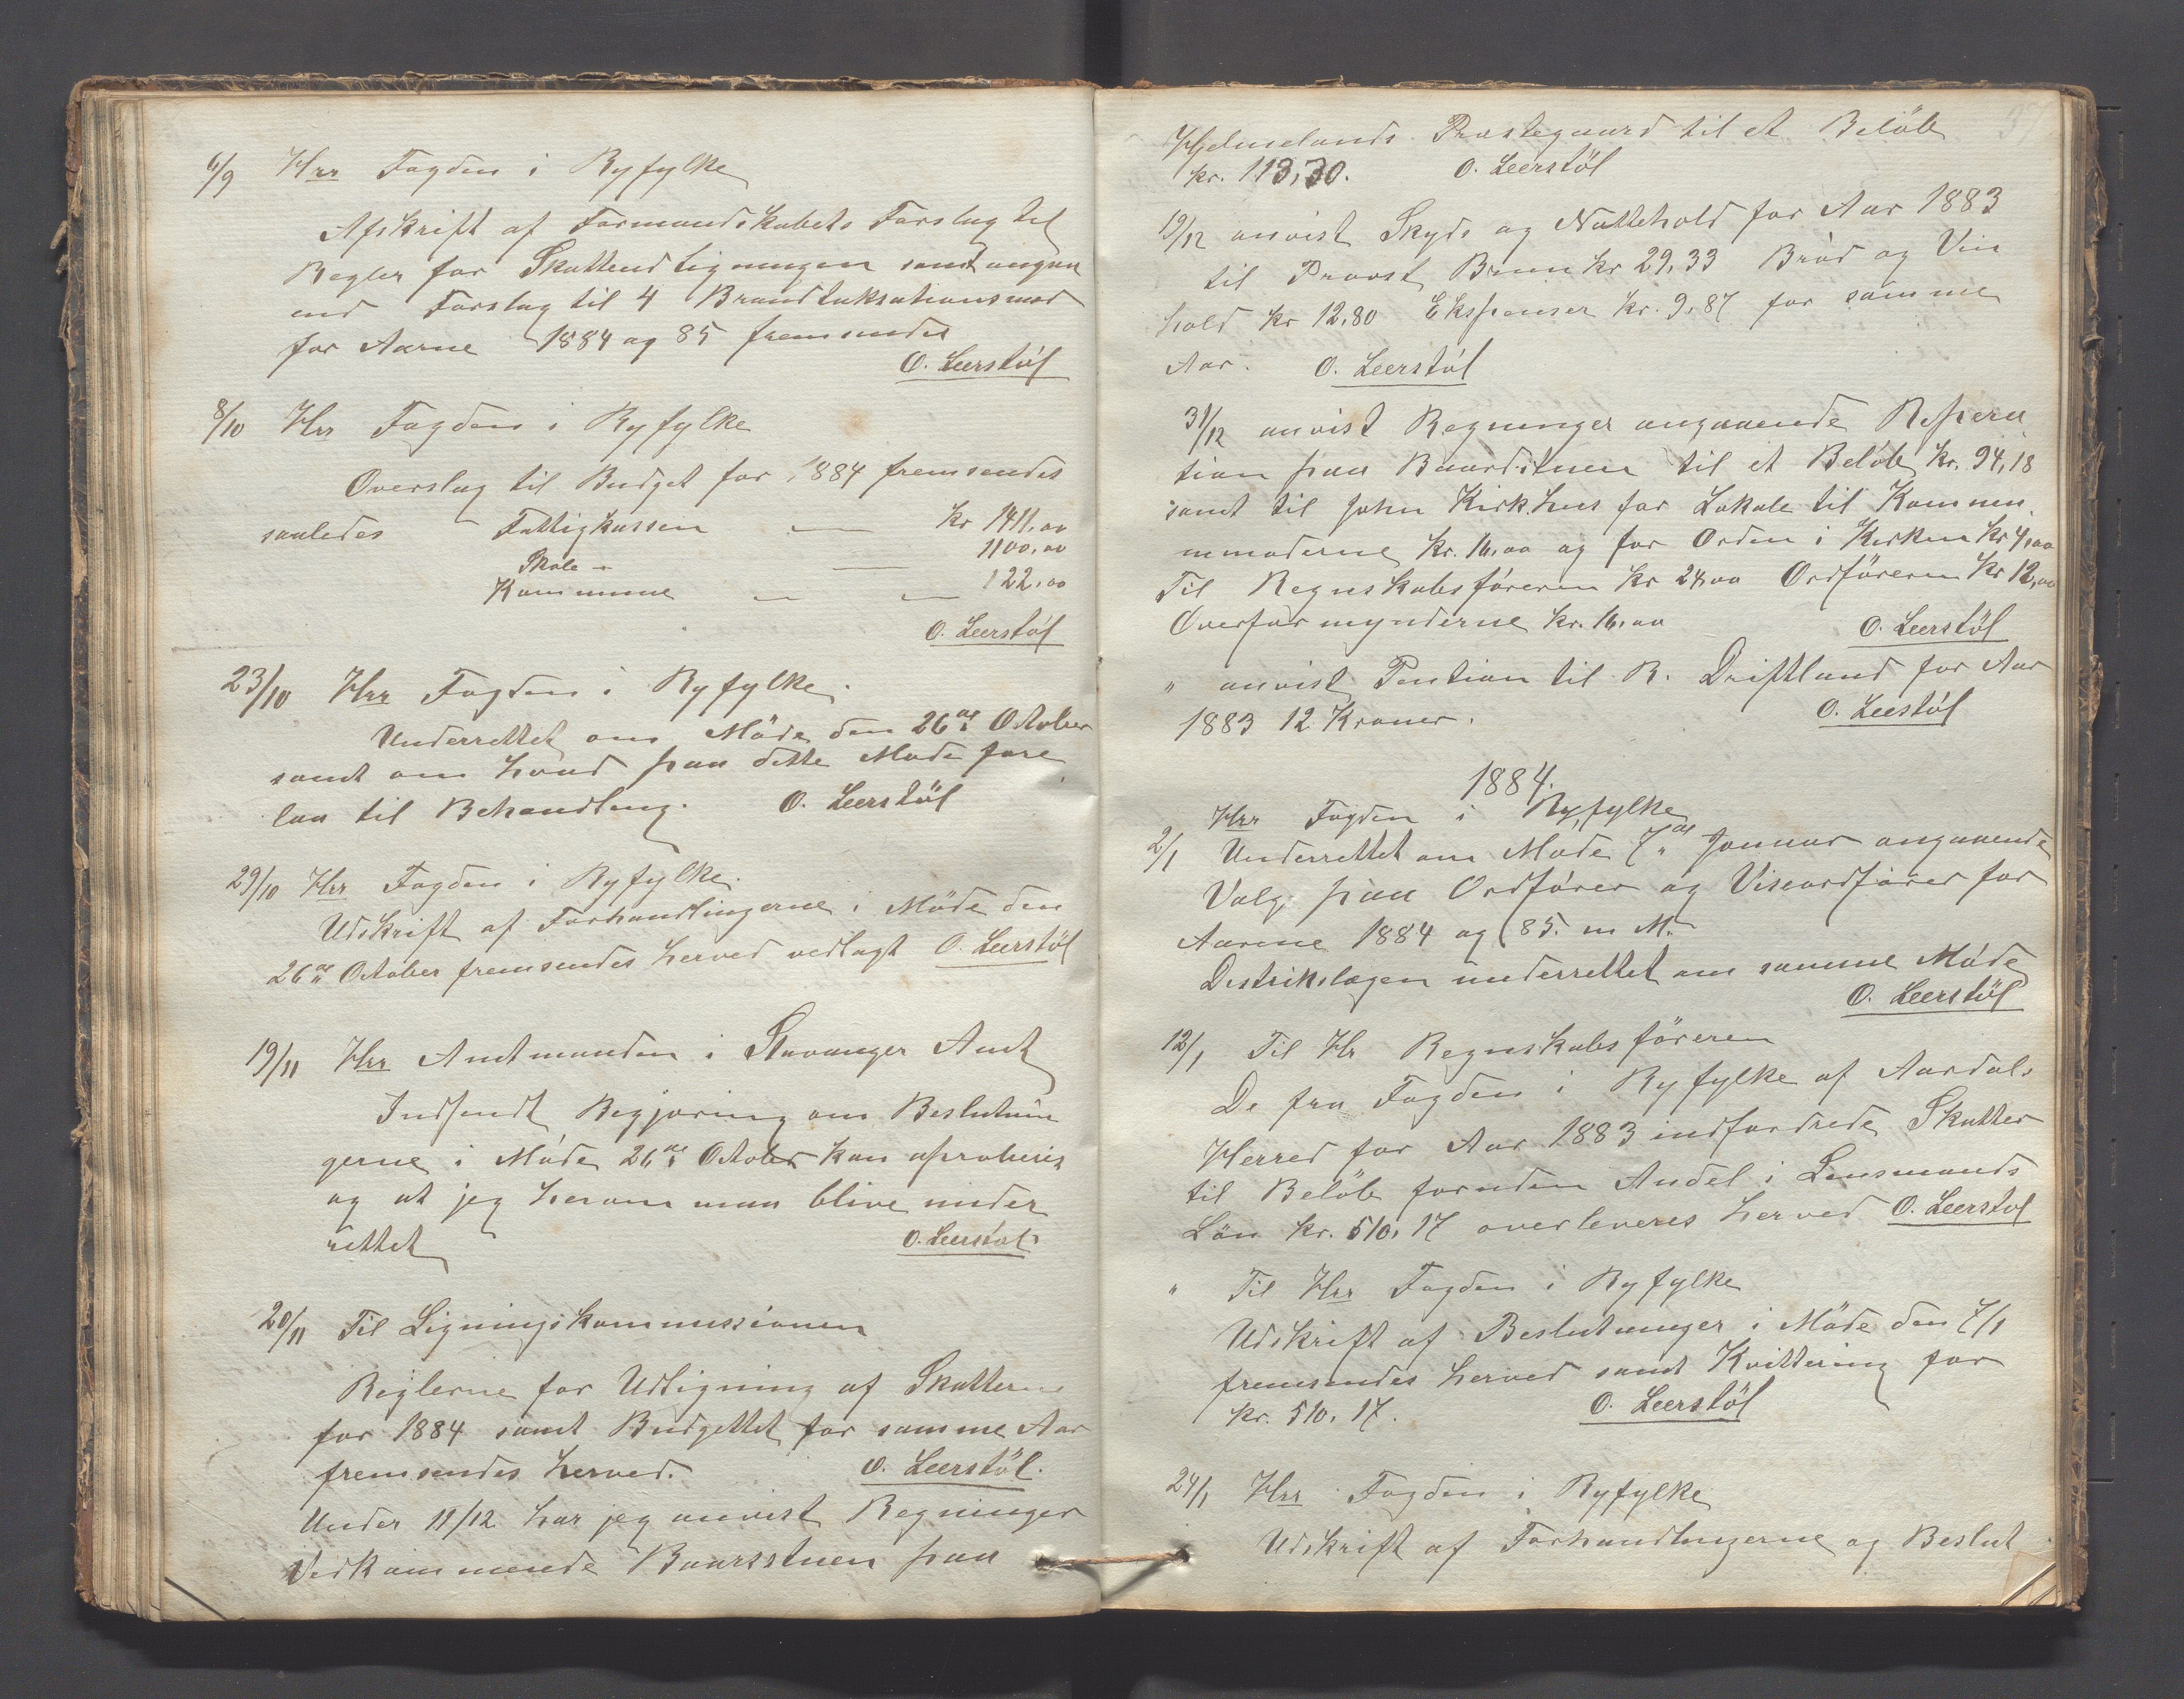 6/9 Hrr Fogden i Ryfylke
Afskrift af Formandskabets Forslag til
Regler for Skatteudligningen samt angaa
end Forslag til 4 Brandtaksationsmæd
for Aarne 1884 og 85 fremsendes
O. Leerstöl
8/10 Hrr Fogden i Ryfylke
Overslag til Budget for 1884 fremsendes
saaledes Fattigkassen — Kr 1411,00
Skole - — 1100,00
Kommune — — 122,00
O. Leerstöl
23/10 Hrr Fogden i Ryfylke.
Underrettet om Möde den 26de October
samt om hvad paa dette Mode fore
laa til Behandling. O. Leerstöl
29/10 Hrr Fogden i Ryfylke.
Udskrift af Forhandlingerne i Möde den
26de October fremsendes herved vedlagt O. Leerstöl
19/11 Hrr Amtmanden i Stavanger Amt
Indsendt Begjæring om Beslutnin
gerne i Möde 26de October kan aproberes
og at jeg herom maa blive under
rettet O. Leerstöl
20/11 Til Ligningskommissionen
Reglerne for Udligning af Skatterne
for 1884 samt Budgettet for samme Aar
fremsendes herved. O. Leerstöl.
Under 11/12 har jeg anvist Regninger
Vedkommende Baarsstuen paa
Hjelmelands Præstegaard til et Belöb
kr. 113,30. O. Leerstöl
19/12 anvist Skyds og Nattehold for Aar 1883
til Provst Bruun kr 29,33 Bröd og Vin
hold kr 12,80 Ekspenser kr. 9,87 for samme
Aar. O. Leerstöl
31/12 anvist Regninger angaaende Repera
tion paa Baardstuen til et Belöb kr. 94,18
samt til John Kirkhus for Lokale til Kommu
nmoderne kr. 16,00 og for Orden i Kirken kr 4,00
Til Regnskabsföreren kr 24,00 Ordföreren kr 12,00
Overformynderne kr. 16,00 O. Leerstöl
" anvist Pention til R. Driftland for Aar
1883 12 Kroner. O. Leestöl
1884.
Hrr Fogden i Ryfylke
2/1 Underrettet om Mode 7de Januar angaaende
Valg paa Ordförer og Viseordförer for
Aarene 1884 og 85. m M.
Distrikslægen underrettet om samme Möde
O. Leerstöl
12/1 Til Hr Regnskabsföreren
De fra Fogden i Ryfylke af Aardals
Herred for Aar 1883 indfordrede Skatter
til Belöb foruden Andel i Lensmands
Lön kr. 510,17 overleveres herved O. Leerstöl
" Til Hrr Fogden i Ryfylke
Udskrift af Beslutninger i Möde den 7/1
fremsendes herved samt Kvittering for
kr. 510,17. O. Leerstöl
24/1 Hrr Fogden i Ryfylke
Udskrift af Forhandlingerne og Beslut